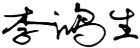 李鸿生